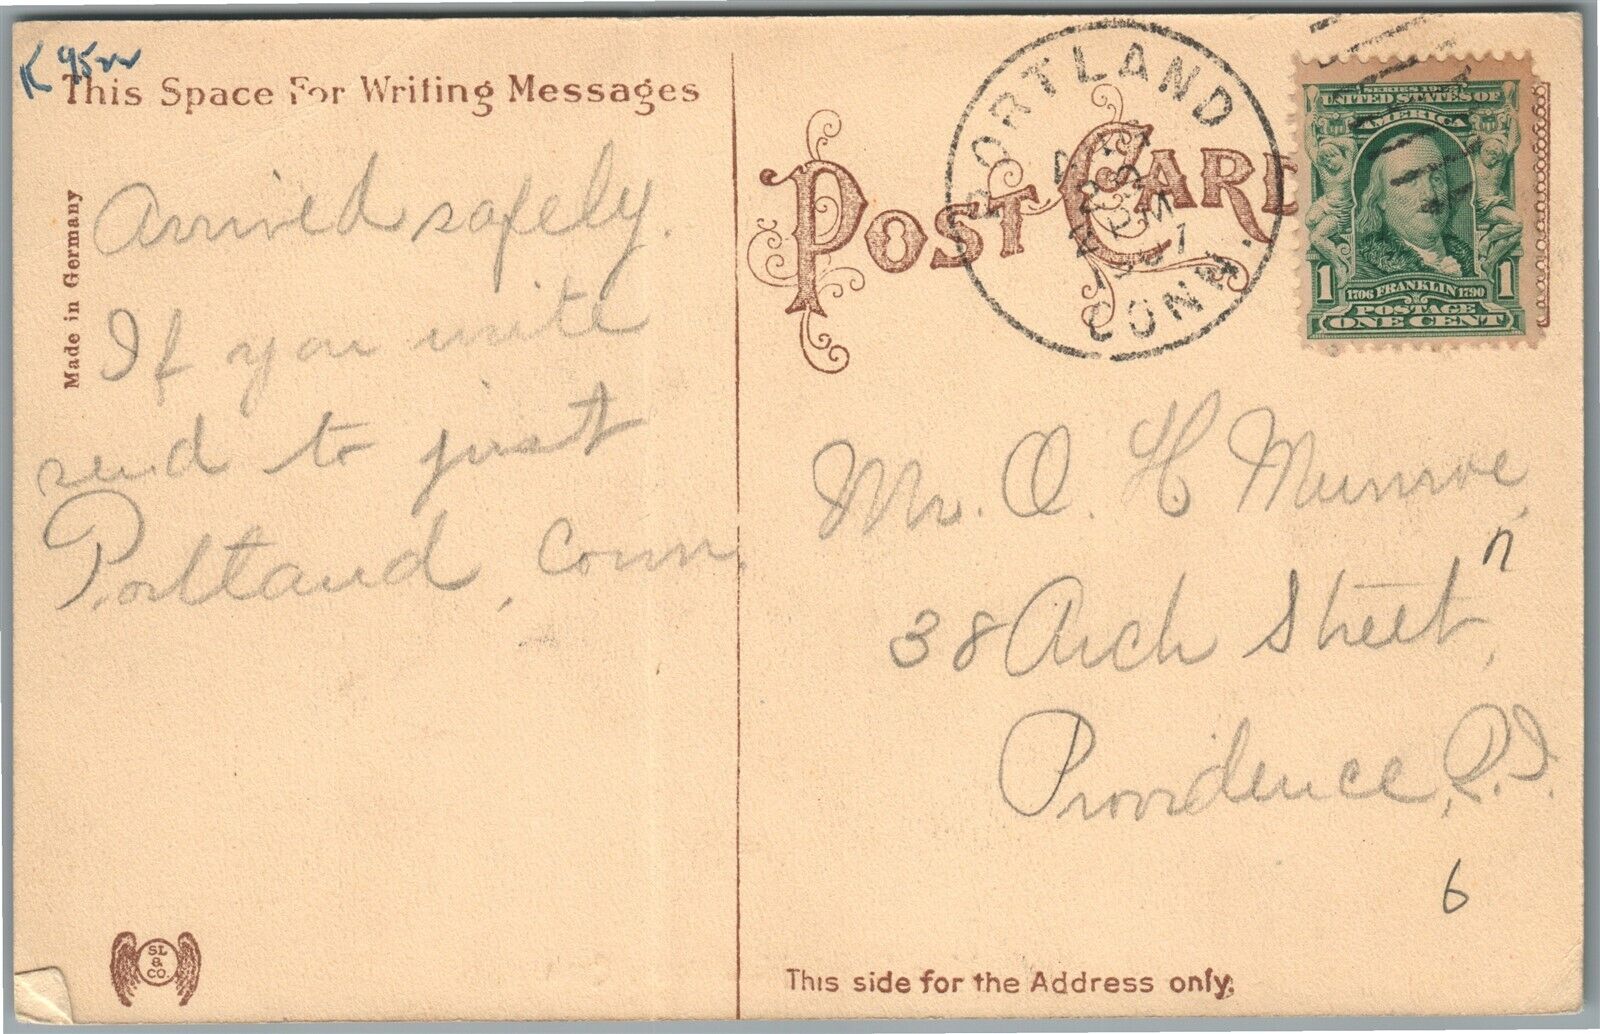 This Space For Writing Messages
Made in Germany
Arrived safely.
If you write
send to just
Portland, Conn.
SL
&
CO.
POST CARD
PORTLAND
CONN.
SERIES 1902
UNITED STATES OF
AMERICA
1 1706 FRANKLIN 1790 1
POSTAGE
ONE CENT
Mr. O. H. Munroe,
n
38 Arch Street,
Providence, R.I.
6
This side for the Address only.